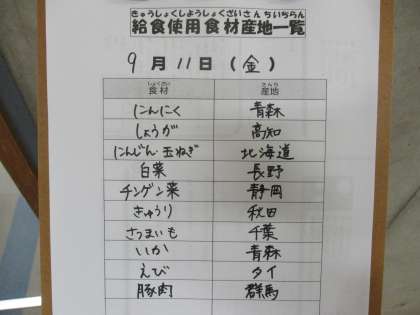 きゅうしょくしようしょくざいさんちいちらん
給食使用食材産地一覧
9月11日(金)
しょくざい さんち
食材 産地
にんにく 青森
しょうが 高知
にんじん 玉ねぎ 北海道
白菜 長野
チンゲン菜 静岡
きゅうり 秋田
さつまいも 千葉
いか 青森
えび タイ
豚肉 群馬